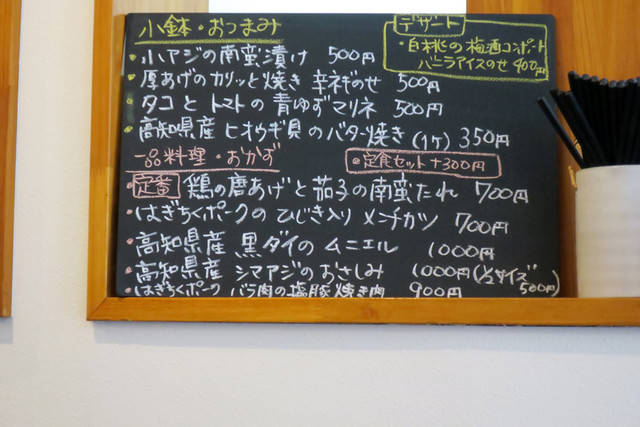 小鉢・おつまみ
・小アジの南蛮漬け 500円
・厚あげのカリッと焼き 辛ネギのせ 500円
・タコとトマトの青ゆずマリネ 500円
・高知県産 ヒオウギ貝のバター焼き (1ケ) 350円
デザート
・白桃の梅酒コンポート
バニラアイスのせ 400円
一品料理・おかず
●定食セット+300円
・定番 鶏の唐あげと茄子の南蛮たれ 700円
・はぎちくポークのひじき入りメンチカツ 700円
・高知県産 黒ダイのムニエル 1000円
・高知県産 シマアジのおさしみ 1000円(1/2サイズ 500円)
・はぎちくポーク バラ肉の塩豚焼き肉 900円